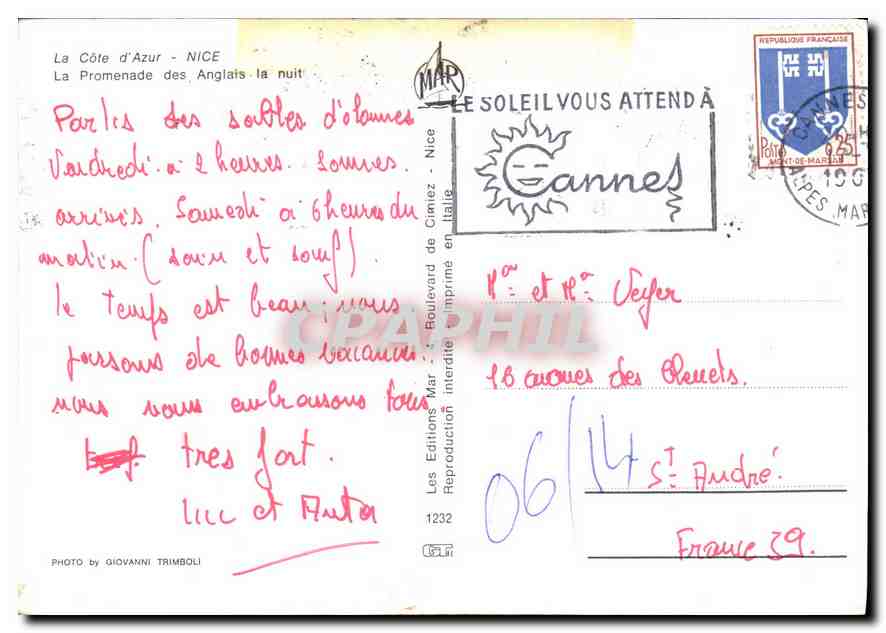 La Côte d'Azur - NICE
La Promenade des Anglais la nuit
Partis des sables d'olonnes
Vendredi à 2 heures. Sommes
arrivés. Samedi à 6 heures du
matin. (sain et sauf).
le temps est beau; nous
passons de bonnes vacances.
nous vous embrassons tous
tres fort.
Luc et Anita
PHOTO by GIOVANNI TRIMBOLI
MAR
Les Editions Mar 4 Boulevard de Cimiez - Nice
Reproduction interdite - Imprimé en Italie
1232
LE SOLEIL VOUS ATTEND À
Cannes
REPUBLIQUE FRANÇAISE
POSTES 0,25
MONT-DE-MARSAN
CANNES
ALPES MAR
et
16 des Bleuets.
06/14
St André
France 39.
CPAPHIL